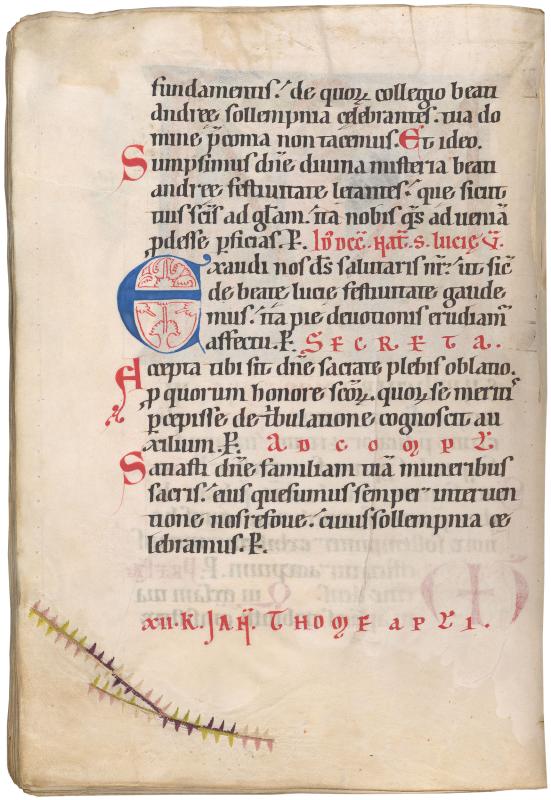 fundamentis. de quoꝝ collegio beati
andree sollempnia celebrantes. tua do
mine p̄conia non tacemus. Et ideo.
Sumpsimus dn̄e diuina misteria beati
andree festiuitate letantes. que sicut
tuis sc̄is ad gl̄am. ita nobis q̄s ad uēniā
ꝓdesse ꝑficias. P. Nat̄. S. lucię V̄.
Exaudi nos ds̄ salutaris nr̄. ut sic̄
de beate lucie festiuitate gaude
mus. ita pie deuotionis erudiam̄
affectu. P. SECRETA.
Accepta tibi sit dn̄e sacrate plebis oblatio.
ꝓ quorum honore sc̄oꝝ. quoꝝ se meritis
ꝑcepisse de t̄bulatione cognoscit au
xilium. P. AD COMPL̄.
Satiasti dn̄e familiam tuā muneribus
sacris. eius quesumus semper interuen
tione nos refoue. cuius sollempnia ce
lebramus. P.
XII. K. JAN̄. THOME APL̄I.